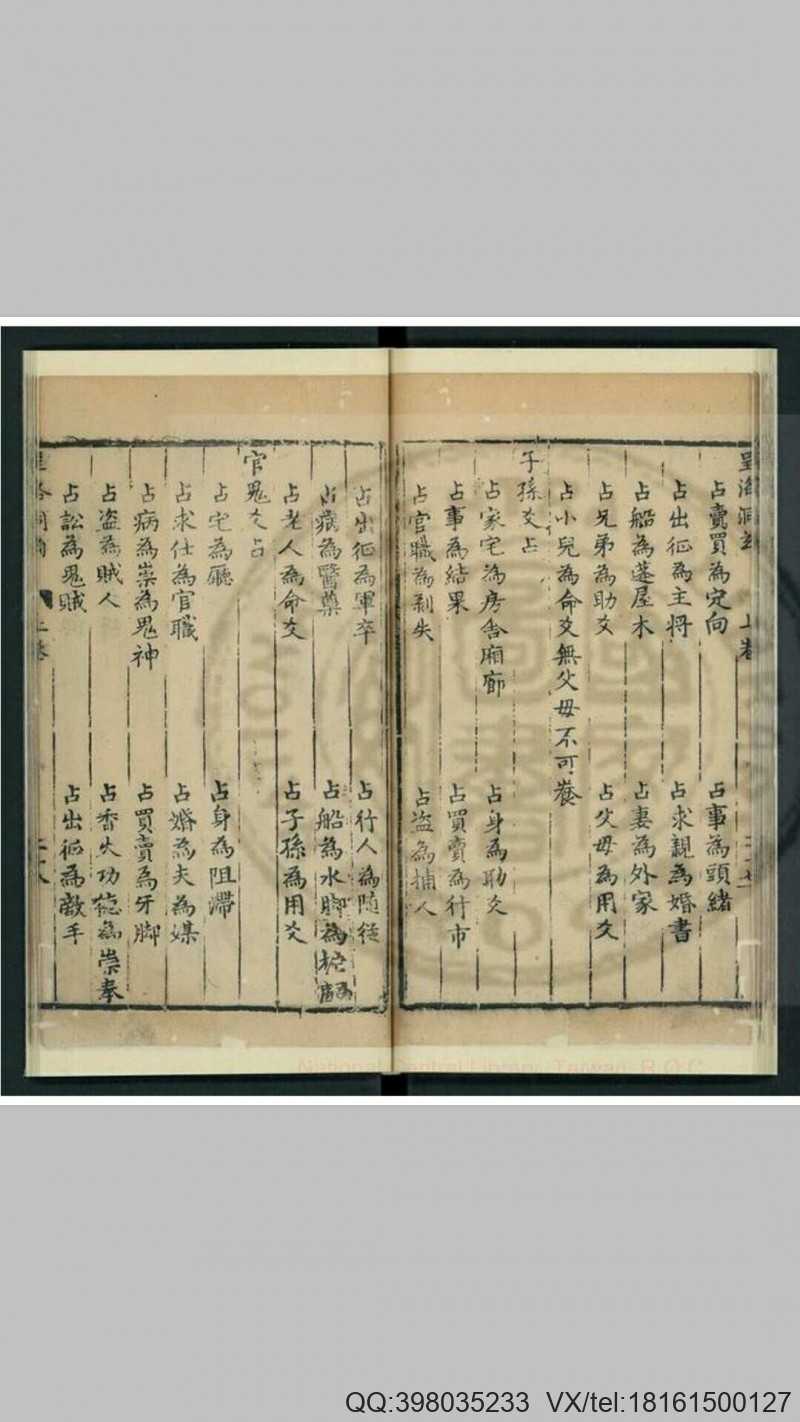 占賣買為定向 占事為頭緒
占出征為主將 占求親為婚書
占船為蓬屋木 占妻為外家
占兄弟為助爻 占父母為用爻
占小兒為命爻無父母不可養
子孫爻占
占家宅為房舍廂廊 占身為助爻
占事為結果 占買賣為行市
占官職為剥失 占盗為捕人
占出征為軍卒 占行人為隨從
占病為醫藥 占船為水脚為柁
占老人為命爻 占子孫為用爻
官鬼爻占
占宅為廳 占身為阻滯
占求仕為官職 占婚為夫為媒
占病為祟為鬼神 占買賣為牙脚
占盗為賊人 占香火功德為崇奉
占訟為鬼賊 占出征為敵手
上卷
QQ:398035233 VX/tel:18161500127